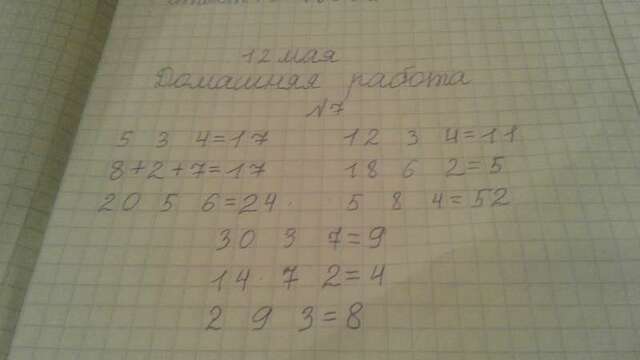 12 мая
Домашняя работа
№7
5 3 4=17 12 3 4=11
8+2+7=17 18 6 2=5
20 5 6=24. 5 8 4=52
30 3 7=9
14. 7 2=4
2 9 3=8